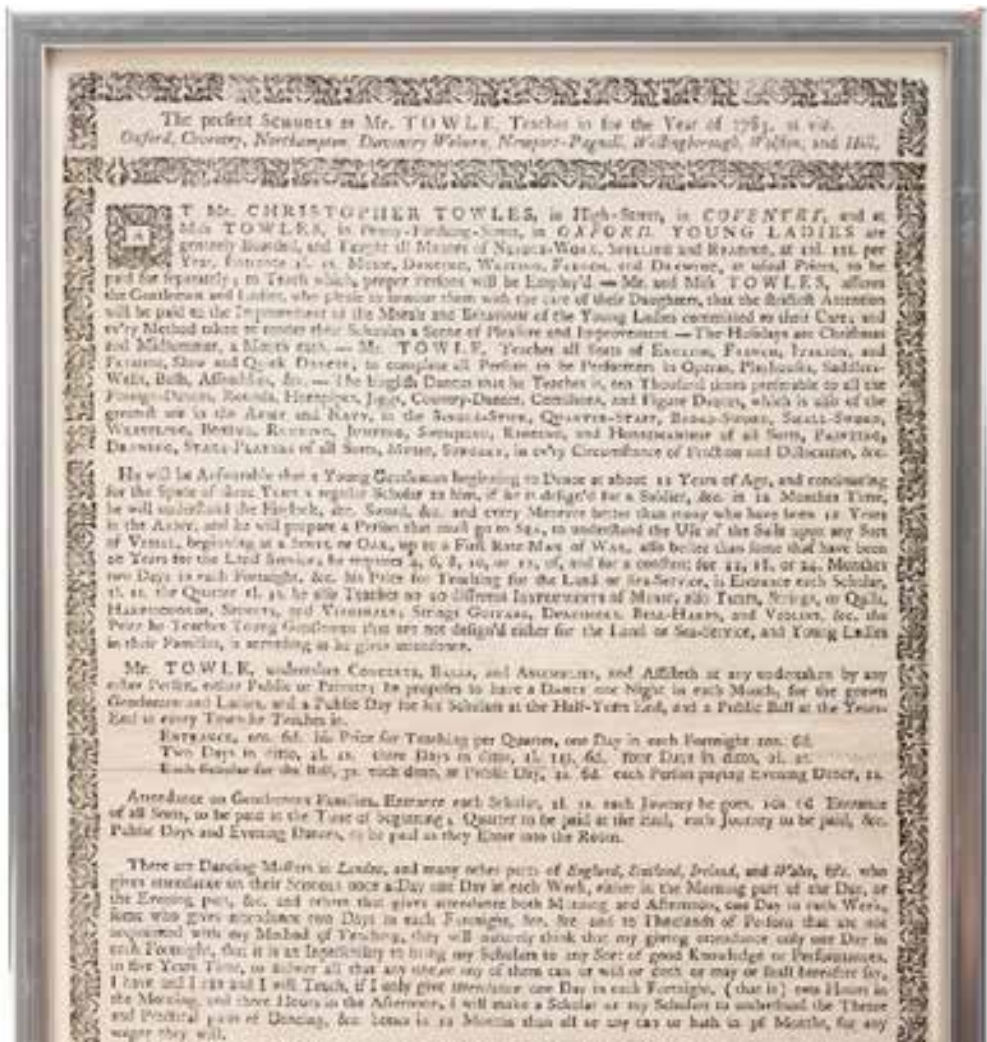 The present SCHOOLS as Mr. TOWLE, Teaches in for the Year of 1765, at viz.
Oxford, Coventry, Northampton, Daventry Woburn, Newport-Pagnell, Wellingborough, and Hill,
AT Mr. CHRISTOPHER TOWLES, in High-Street, in COVENTRY, and at
Miss TOWLES, in Penny-Farthing-Street, in OXFORD. YOUNG LADIES are
genteely Boarded, and Taught all Manner of NEEDLE-WORK, SPELLING and READING, at per
Year, Entrance 1l. 1s. MUSIC, DANCING, WRITING, FRENCH, and DRAWING, at usual Prices, to be
paid for separately; to Teach which, proper Persons will be Employ'd — Mr. and Miss TOWLES, assures
the Gentlemen and Ladies, who please to honour them with the care of their Daughters, that the strictest Attention
will be paid to the Improvement of the Morals and Behaviour of the Young Ladies committed to their Care; and
ev'ry Method taken to render their Schools a Scene of Pleasure and Improvement. — The Holidays are Christmas
and Midsummer, a Month each. — Mr. TOWLE, Teaches all Sorts of ENGLISH, FRENCH, ITALIAN, and
Slow and Quick DANCES, to complete all Persons to be Performers in Operas, Playhouses, Saddlers-
Wells, Balls, Assemblies, &c. — The English Dances that he Teaches is, ten Thousand times preferable to all the
Foreign-Dances, Rounds, Hornpipes, Jiggs, Country-Dances, Cotillions, and Figure Dances, which is also of the
greatest use in the ARMY and NAVY, in the SINGLE-STICK, QUARTER-STAFF, BROAD-SWORD, SMALL-SWORD,
WRESTLING, BOXING, RUNNING, JUMPING, SWIMMING, and HORSEMANSHIP of all Sorts, PAINTING,
DRAWING, STAGE-PLAYERS of all Sorts, MUSIC, SURGERY, in ev'ry Circumstance of Friction and Dislocation, &c.
He will be Answerable that a Young Gentleman beginning to Dance at about 11 Years of Age, and continuing
for the Space of three Years a regular Scholar to him, if he is design'd for a Soldier, &c. in 12 Months Time,
he will understand the Firelock, &c. Sword, &c. and every Manoeuvre better than many who have been 12 Years
in the ARMY, and he will prepare a Person that must go to SEA, to understand the Use of the Sails upon any Sort
of VESSEL, beginning at a or OAR, up to a First Rate MAN of WAR, also better than some that have been
20 Years for the Land Service; he requires 4, 6, 8, 10, or 12, of, and for a constant for 12, 18, or 24, Months
two Days in each Fortnight, &c. his Price for Teaching for the Land or Sea-Service, is Entrance each Scholar,
1l. 1s. the Quarter 1l. 1s. he also Teaches on 20 different INSTRUMENTS of MUSIC, also TUNES, Strings, or Quills,
HARPSICORDS, SPINETS, and VIRGINALS, Strings GUITARS, DULCIMERS, BELL-HARPS, and VIOLINS, &c. the
Price he Teaches Young Gentlemen that are not design'd either for the Land or Sea-Service, and Young Ladies
in their Families, is according as he gives attendance.
Mr. TOWLE, undertakes CONCERTS, BALLS, and ASSEMBLIES, and Assisteth at any undertaken by any
other Person, either Public or Private; he proposes to have a DANCE one Night in each Month, for the grown
Gentlemen and Ladies, and a Public Day for his Scholars at the Half-Years End, and a Public Ball at the Years-
End in every Town he Teaches in.
ENTRANCE, 10s. 6d. his Price for Teaching per Quarter, one Day in each Fortnight 10s. 6d.
Two Days in ditto, 1l. 1s. three Days in ditto, 1l. 11s. 6d. four Days in ditto, 2l. 2s.
Each Scholar for the Ball, each ditto, at Public Day, 2s. 6d. each Person paying Evening Dance, 1s.
Attendance on Gentlemens Families, Entrance each Scholar, 1l. 1s. each Journey he goes, 10s. 6d. Entrance
of all Sorts, to be paid at the Time of beginning; Quarter to be paid at the End, each Journey to be paid, &c.
Public Days and Evening Dances, to be paid as they Enter into the Room.
There are Dancing Masters in London, and many other parts of England, Scotland, Ireland, and Wales, &c. who
gives attendance on their Schools once a Day one Day in each Week, either in the Morning part of the Day, or
the Evening part, &c. and others that gives attendance both Morning and Afternoon, one Day in each Week,
some who gives attendance two Days in each Fortnight, &c. &c. and as Thousands of Persons that are not
acquainted with my Method of Teaching, they will naturally think that my giving attendance only one Day in
each Fortnight, that it is an Impossibility to bring my Scholars to any Sort of good Knowledge or Performances,
in five Years Time, to answer all that any one or any of them can or will or doth or may or shall hereafter say,
I have and I can and I will Teach, if I only give attendance one Day in each Fortnight, (that is) two Hours in
the Morning, and three Hours in the Afternoon, I will make a Scholar or my Scholars to understand the Theory
and Practical parts of Dancing, &c. better in 12 Months than all or any can or hath in 36 Months, for any
wager they will.